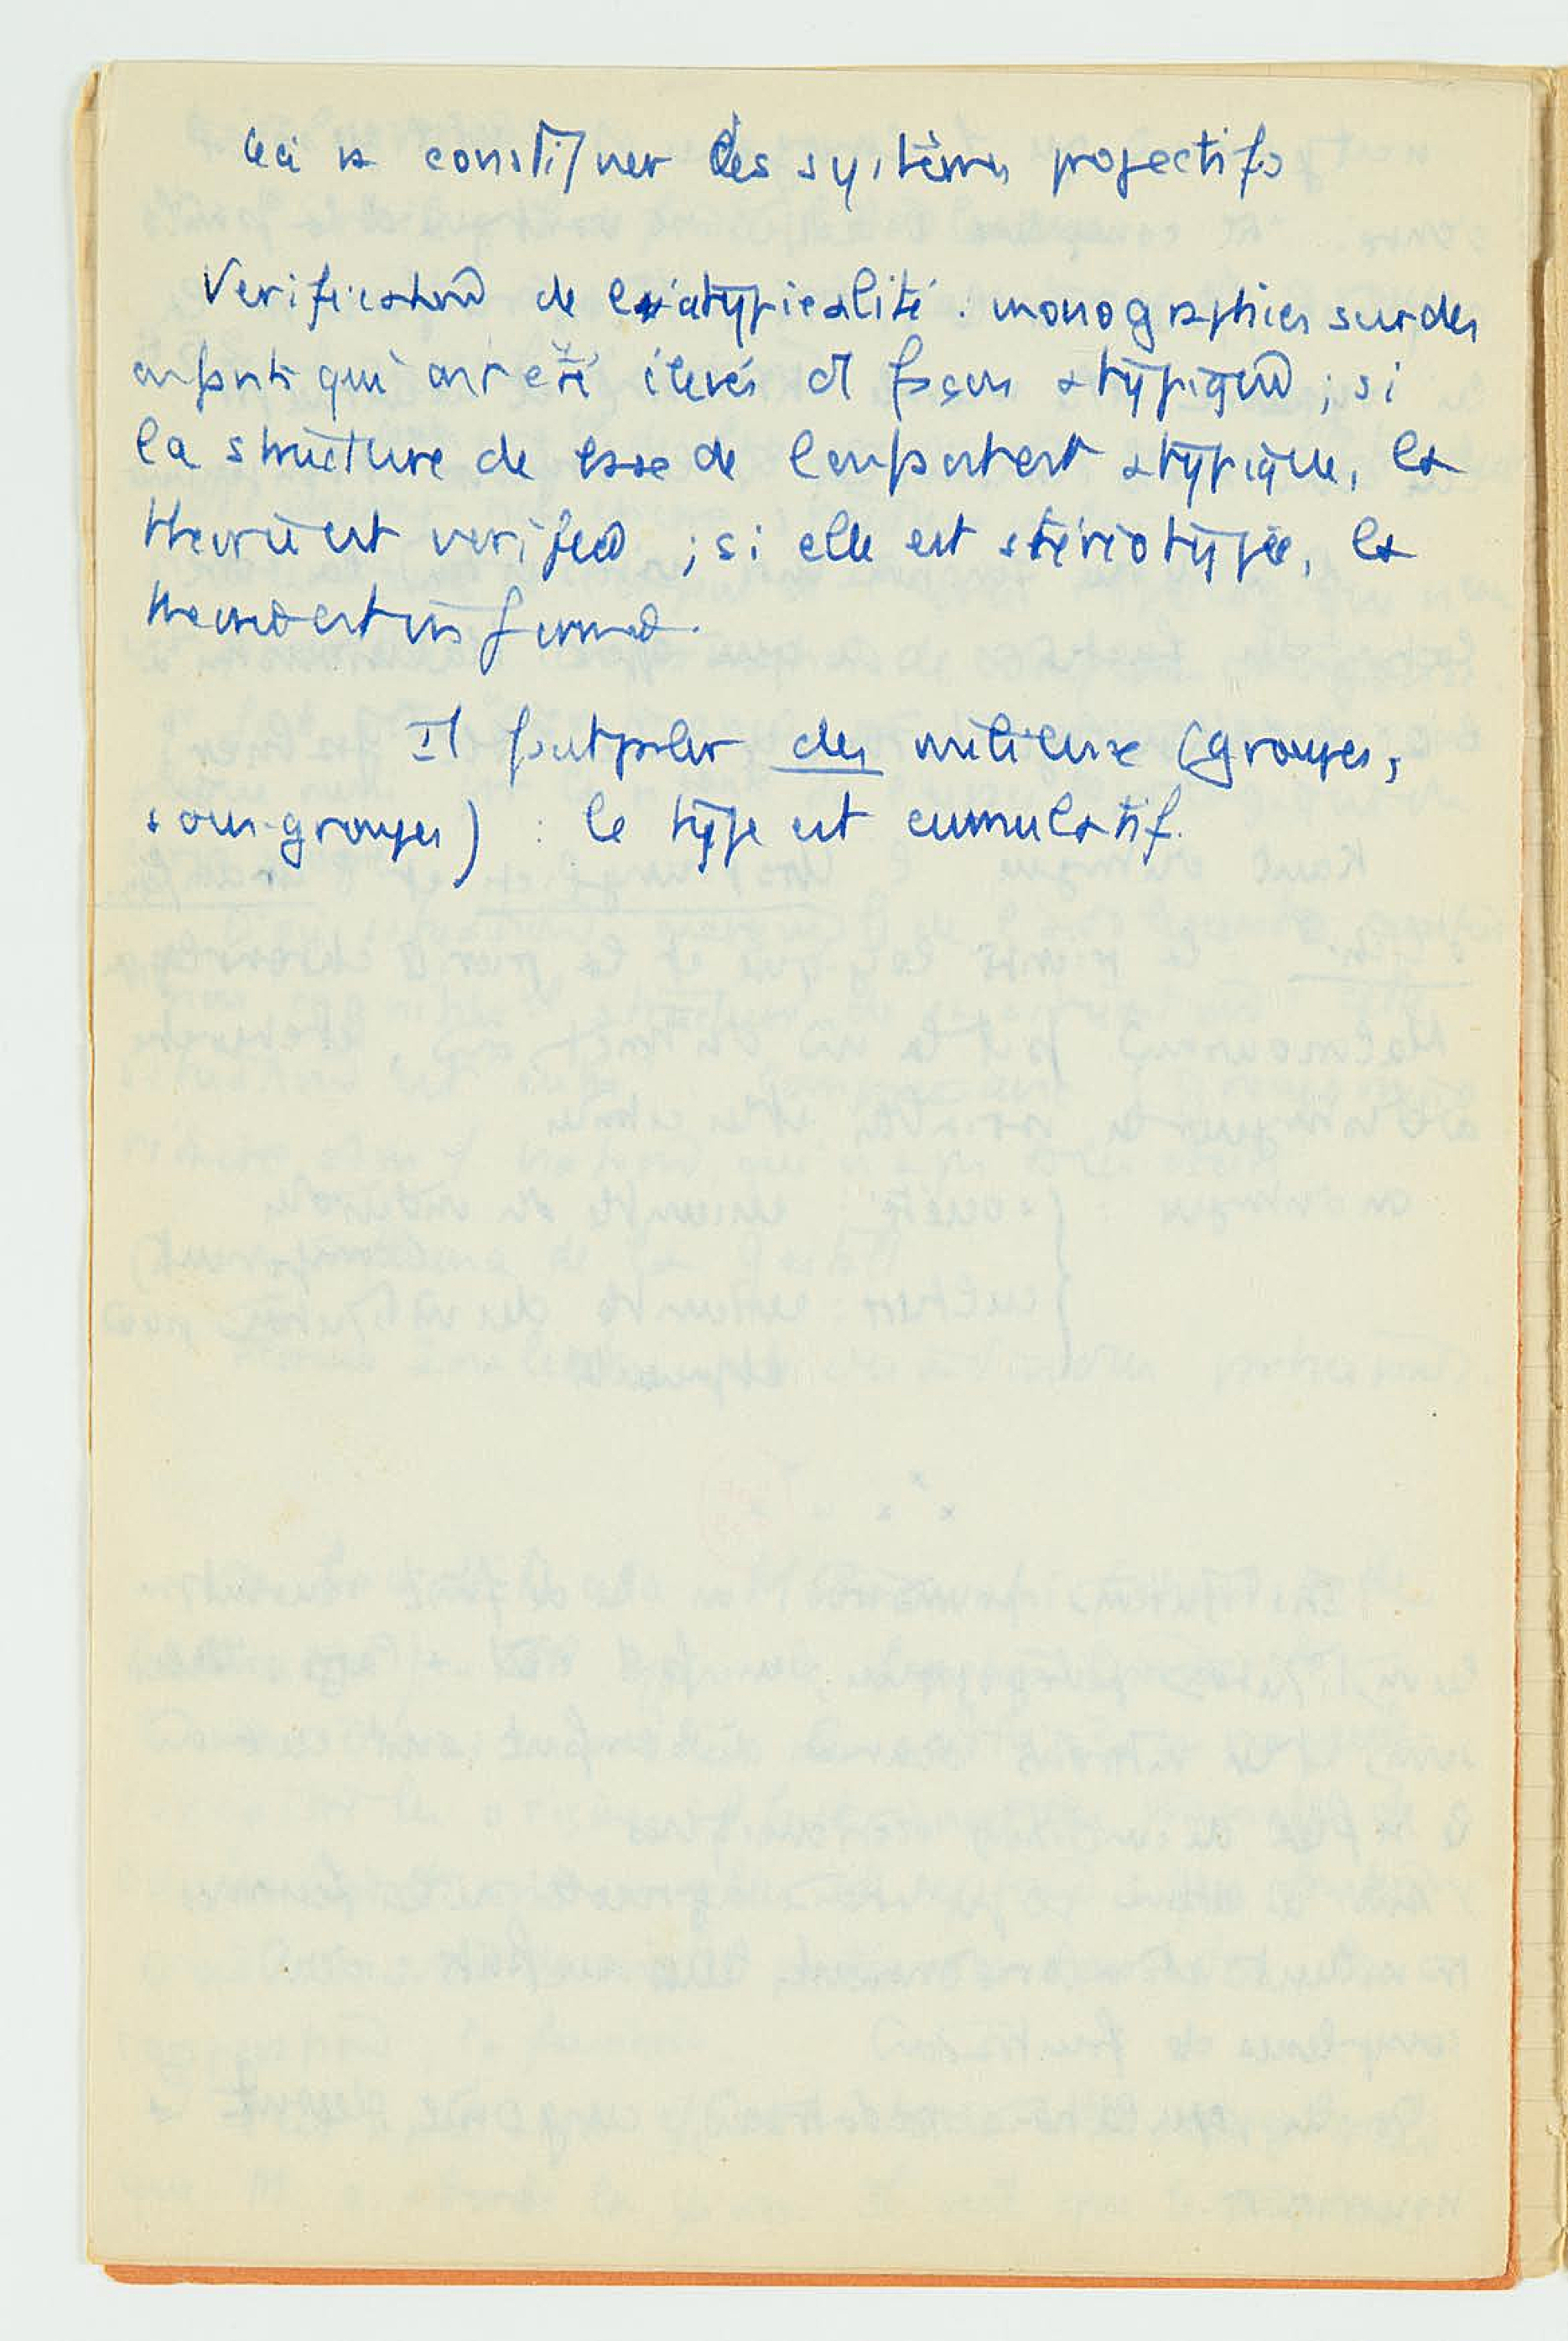 Ceci va constituer des systèmes projectifs
Verification de l'atypicalité : monographies sur des
enfants qui ont été élevés de façon atypique ; si
la structure de base de l'enfant est atypique, la
theorie est verifiée ; si elle est stéréotypée, la
theorie est infirmée.
Il faut parler des milieux (groupes,
sous-groupes) : le type est cumulatif.